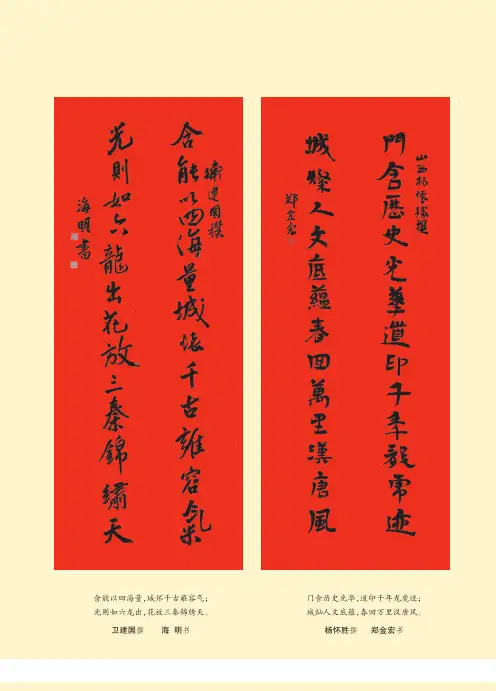 含能以四海量城懷千古雍容氣
衛建國撰
光則如六龍出花放三秦錦繡天
海明書
門含歷史光華道印千年迹
山西楊懷勝撰
城燦人文底蘊春回萬里漢唐風
鄭金宏
含能以四海量,城怀千古雍容气;
光则如六龙出,花放三秦锦绣天。
卫建国撰 海 明书
门含历史光华,道印千年龙虎迹;
城灿人文底蕴,春回万里汉唐风。
杨怀胜撰 郑金宏书